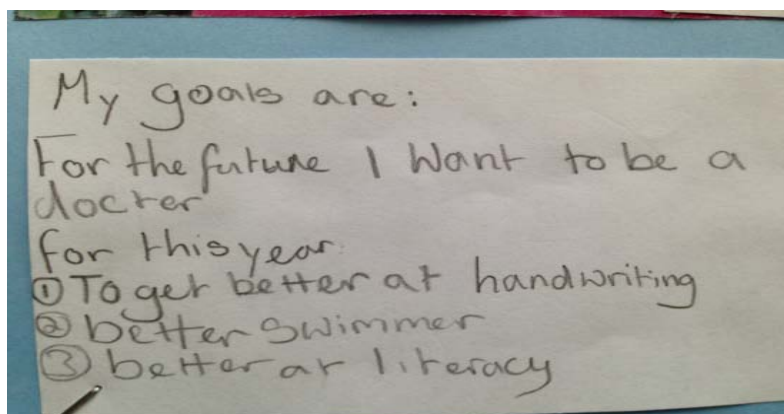 My goals are:
For the future I want to be a
docter
for this year.
① To get better at handwriting
② better swimmer
③ better at literacy